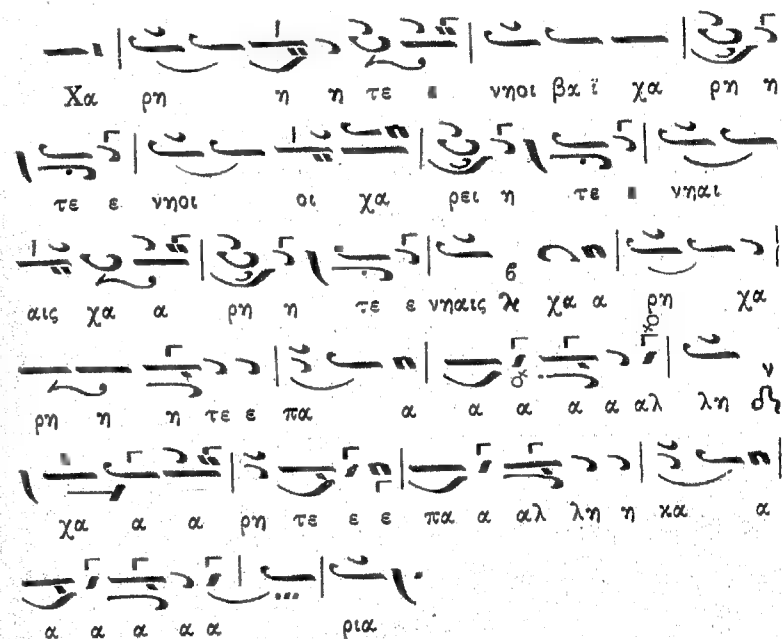 Χα ρη η η τε ε νηοι βα ϊ χα ρη η
τε ε νηοι οι χα ρει η τε ε νηαι
αις χα α ρη η τε ε νηαις λε χα α ρη χα
ρη η η τε ε πα α α α α α αλ λη
χα α α ρη τε ε ε πα α αλ λη η κα α
α α α α α ρια